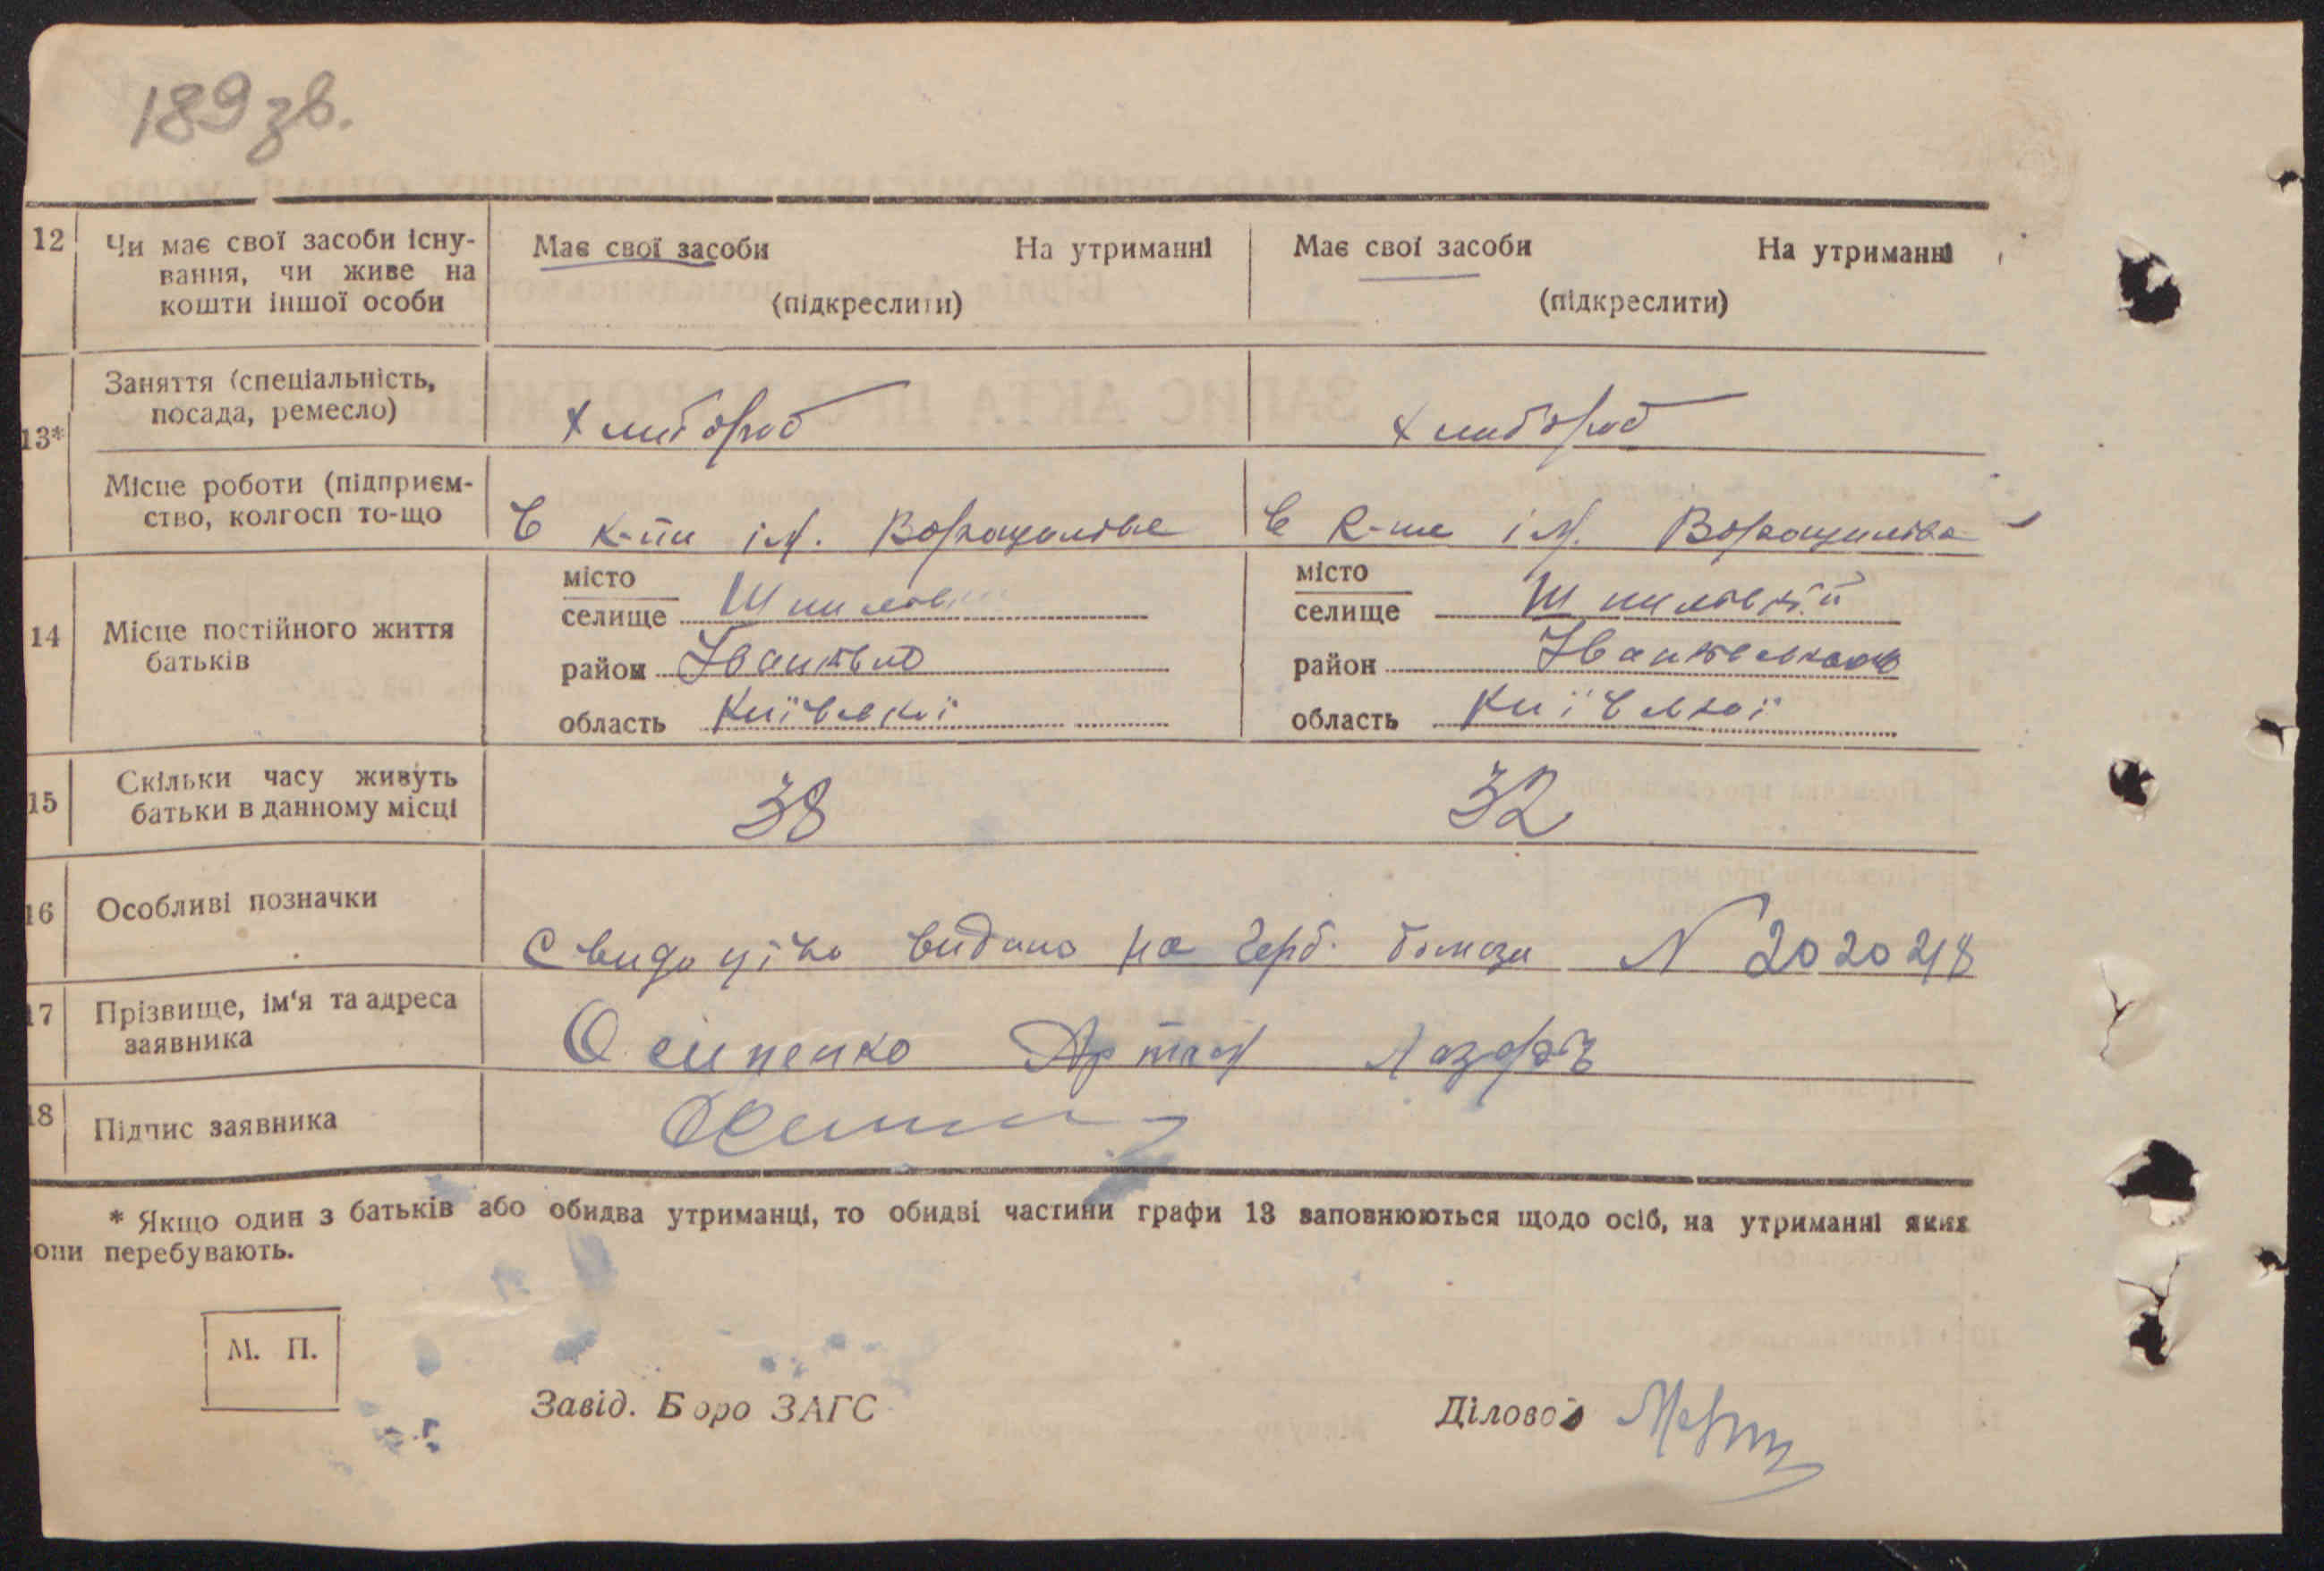 189 зв.
12 Чи має свої засоби існу- Має свої засоби На утриманні Має свої засоби На утриманні
вання, чи живе на
кошти іншої особи (підкреслити) (підкреслити)
Заняття (спеціальність,
посада, ремесло) Хлибороб Хлибороб
13*
Місце роботи (підприєм-
ство, колгосп то-що В к-пи ім. Ворошилова В к-пе ім. Ворошилова
місто місто
селище селище
14 Місце постійного життя
батьків район район
область Київської область Київської
15 Скільки часу живуть
батьки в данному місці 38 32
16 Особливі позначки
Свидоцтво видано на герб. бомази N 202048
17 Прізвище, ім'я та адреса
заявника Осипенко Артем
18 Підпис заявника
* Якщо один з батьків або обидва утриманці, то обидві частини графи 13 заповнюються щодо осіб, на утриманні яких
они перебувають.
М. П.
Завід. Бюро ЗАГС Діловод